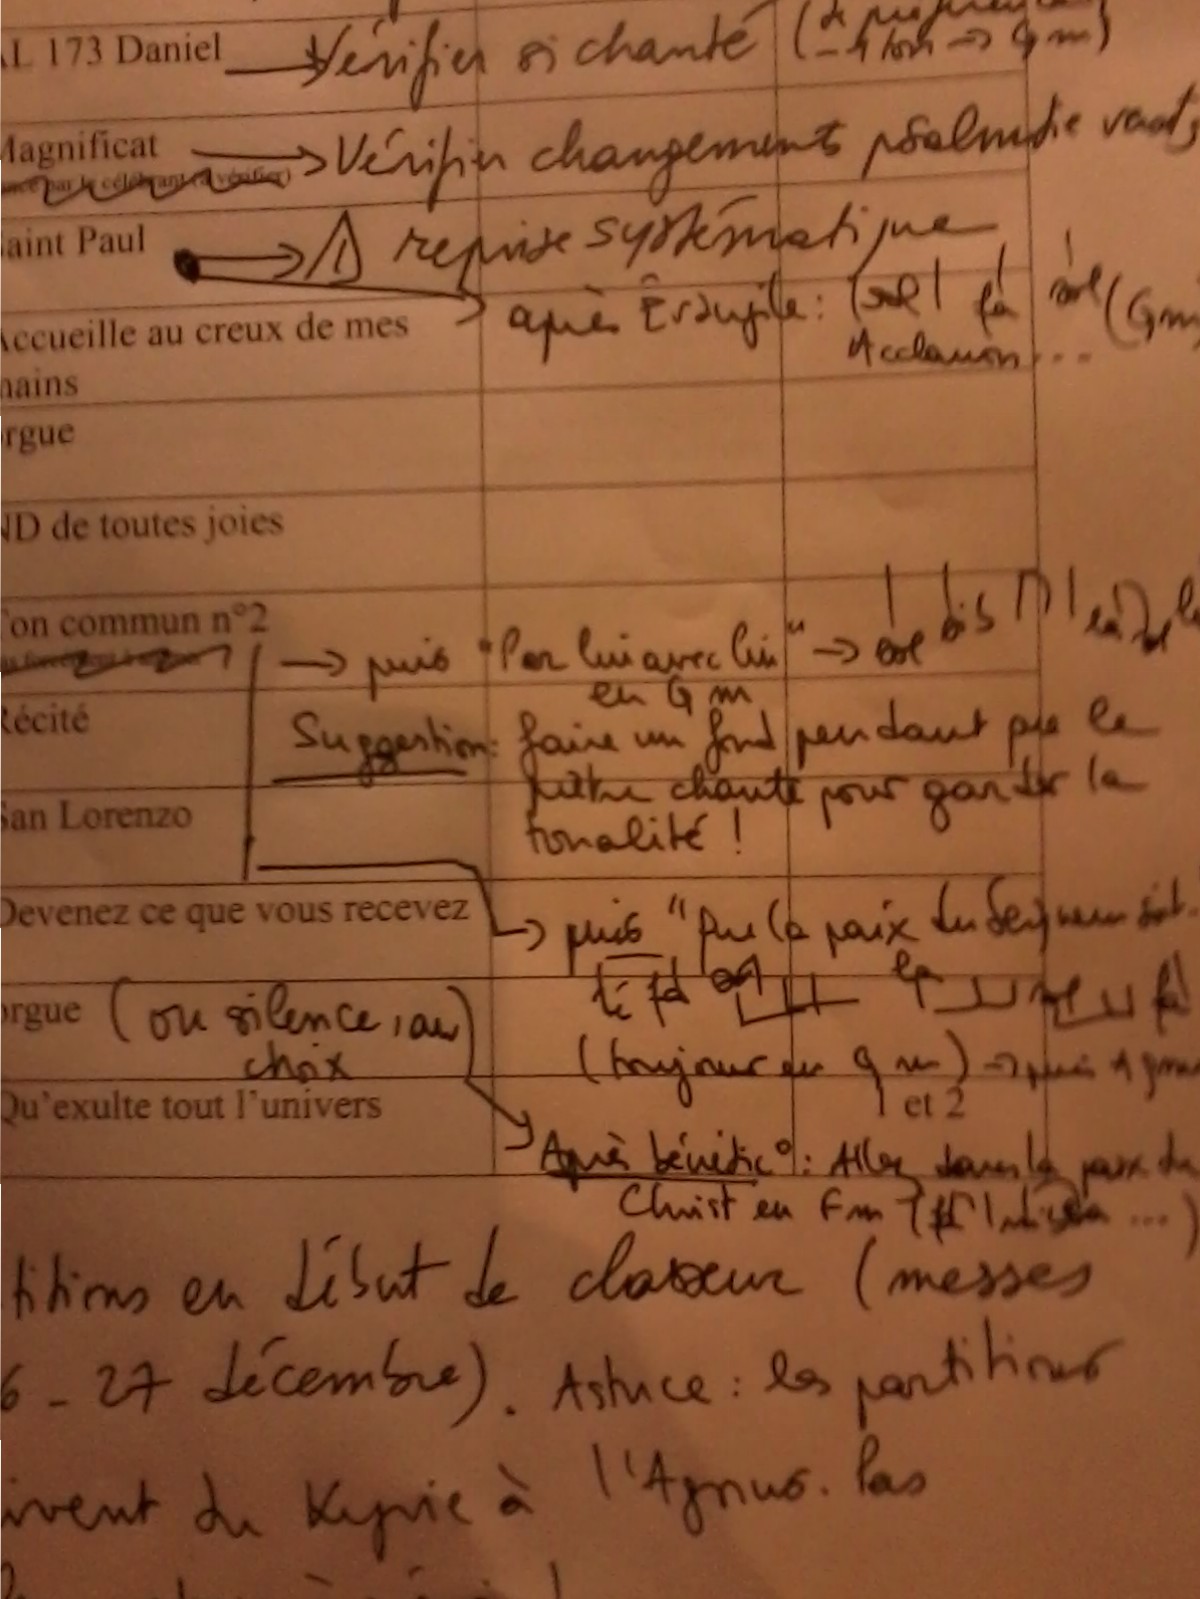 AL 173 Daniel → Vérifier si chanté (de préférence
- 1 ton → Gm)
Magnificat → Vérifier changements psalmodie
par le célébrant (à vérifier)
Saint Paul → reprise systématique
après Évangile: (sol la sol (Gm
Acclamons...
Accueille au creux de mes
mains
orgue
ND de toutes joies
Ton commun n°2
→ puis "Par lui avec lui" → sol
en Gm
Récité
Suggestion: faire un fond pendant que le
prêtre chante pour garder la
tonalité !
San Lorenzo
Devenez ce que vous recevez
→ puis "Que la paix du Seigneur soit
orgue (ou silence, au
choix
(toujours en Gm) → puis
Qu'exulte tout l'univers
1 et 2
Après bénédic°: Allez dans la paix du
Christ en Fm
titions en début de classeur (messes
6 - 27 décembre). Astuce : les partitions
ivent du Kyrie à l'Agnus. Pas